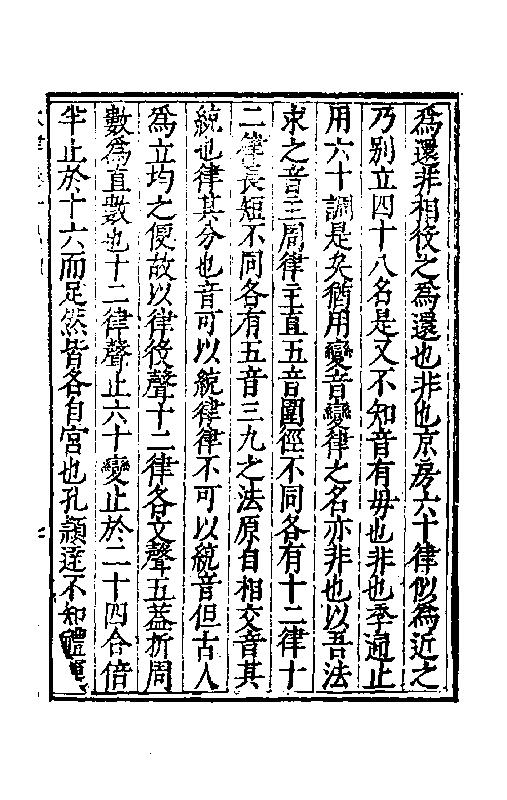 爲還非相役之爲還也非也京房六十律似爲近之
乃别立四十八名是又不知音有毋也非也季通止
用六十調是矣猶用變音變律之名亦非也以吾法
求之音主周律主直五音圍徑不同各有十二律十
二律長短不同各有五音三九之法原自相交音其
統也律其分也音可以統律律不可以統音但古人
爲立均之便故以律役聲十二律各文聲五葢折周
數爲直數也十二律聲止六十變止於二十四合倍
半止於十六而足然皆各自宮也孔穎逹不知體